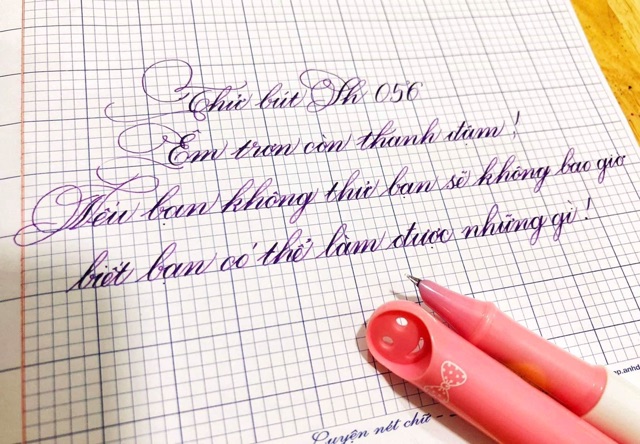 Thử bút Sh 056
Êm trơn còn thanh đậm !
Nếu bạn không thử bạn sẽ không bao giờ
biết bạn có thể làm được những gì !
Luyện nét chữ - -
p.anhd